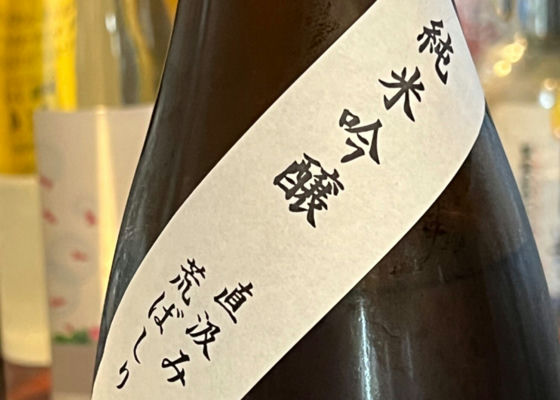 純米吟醸
直汲み
荒ばしり